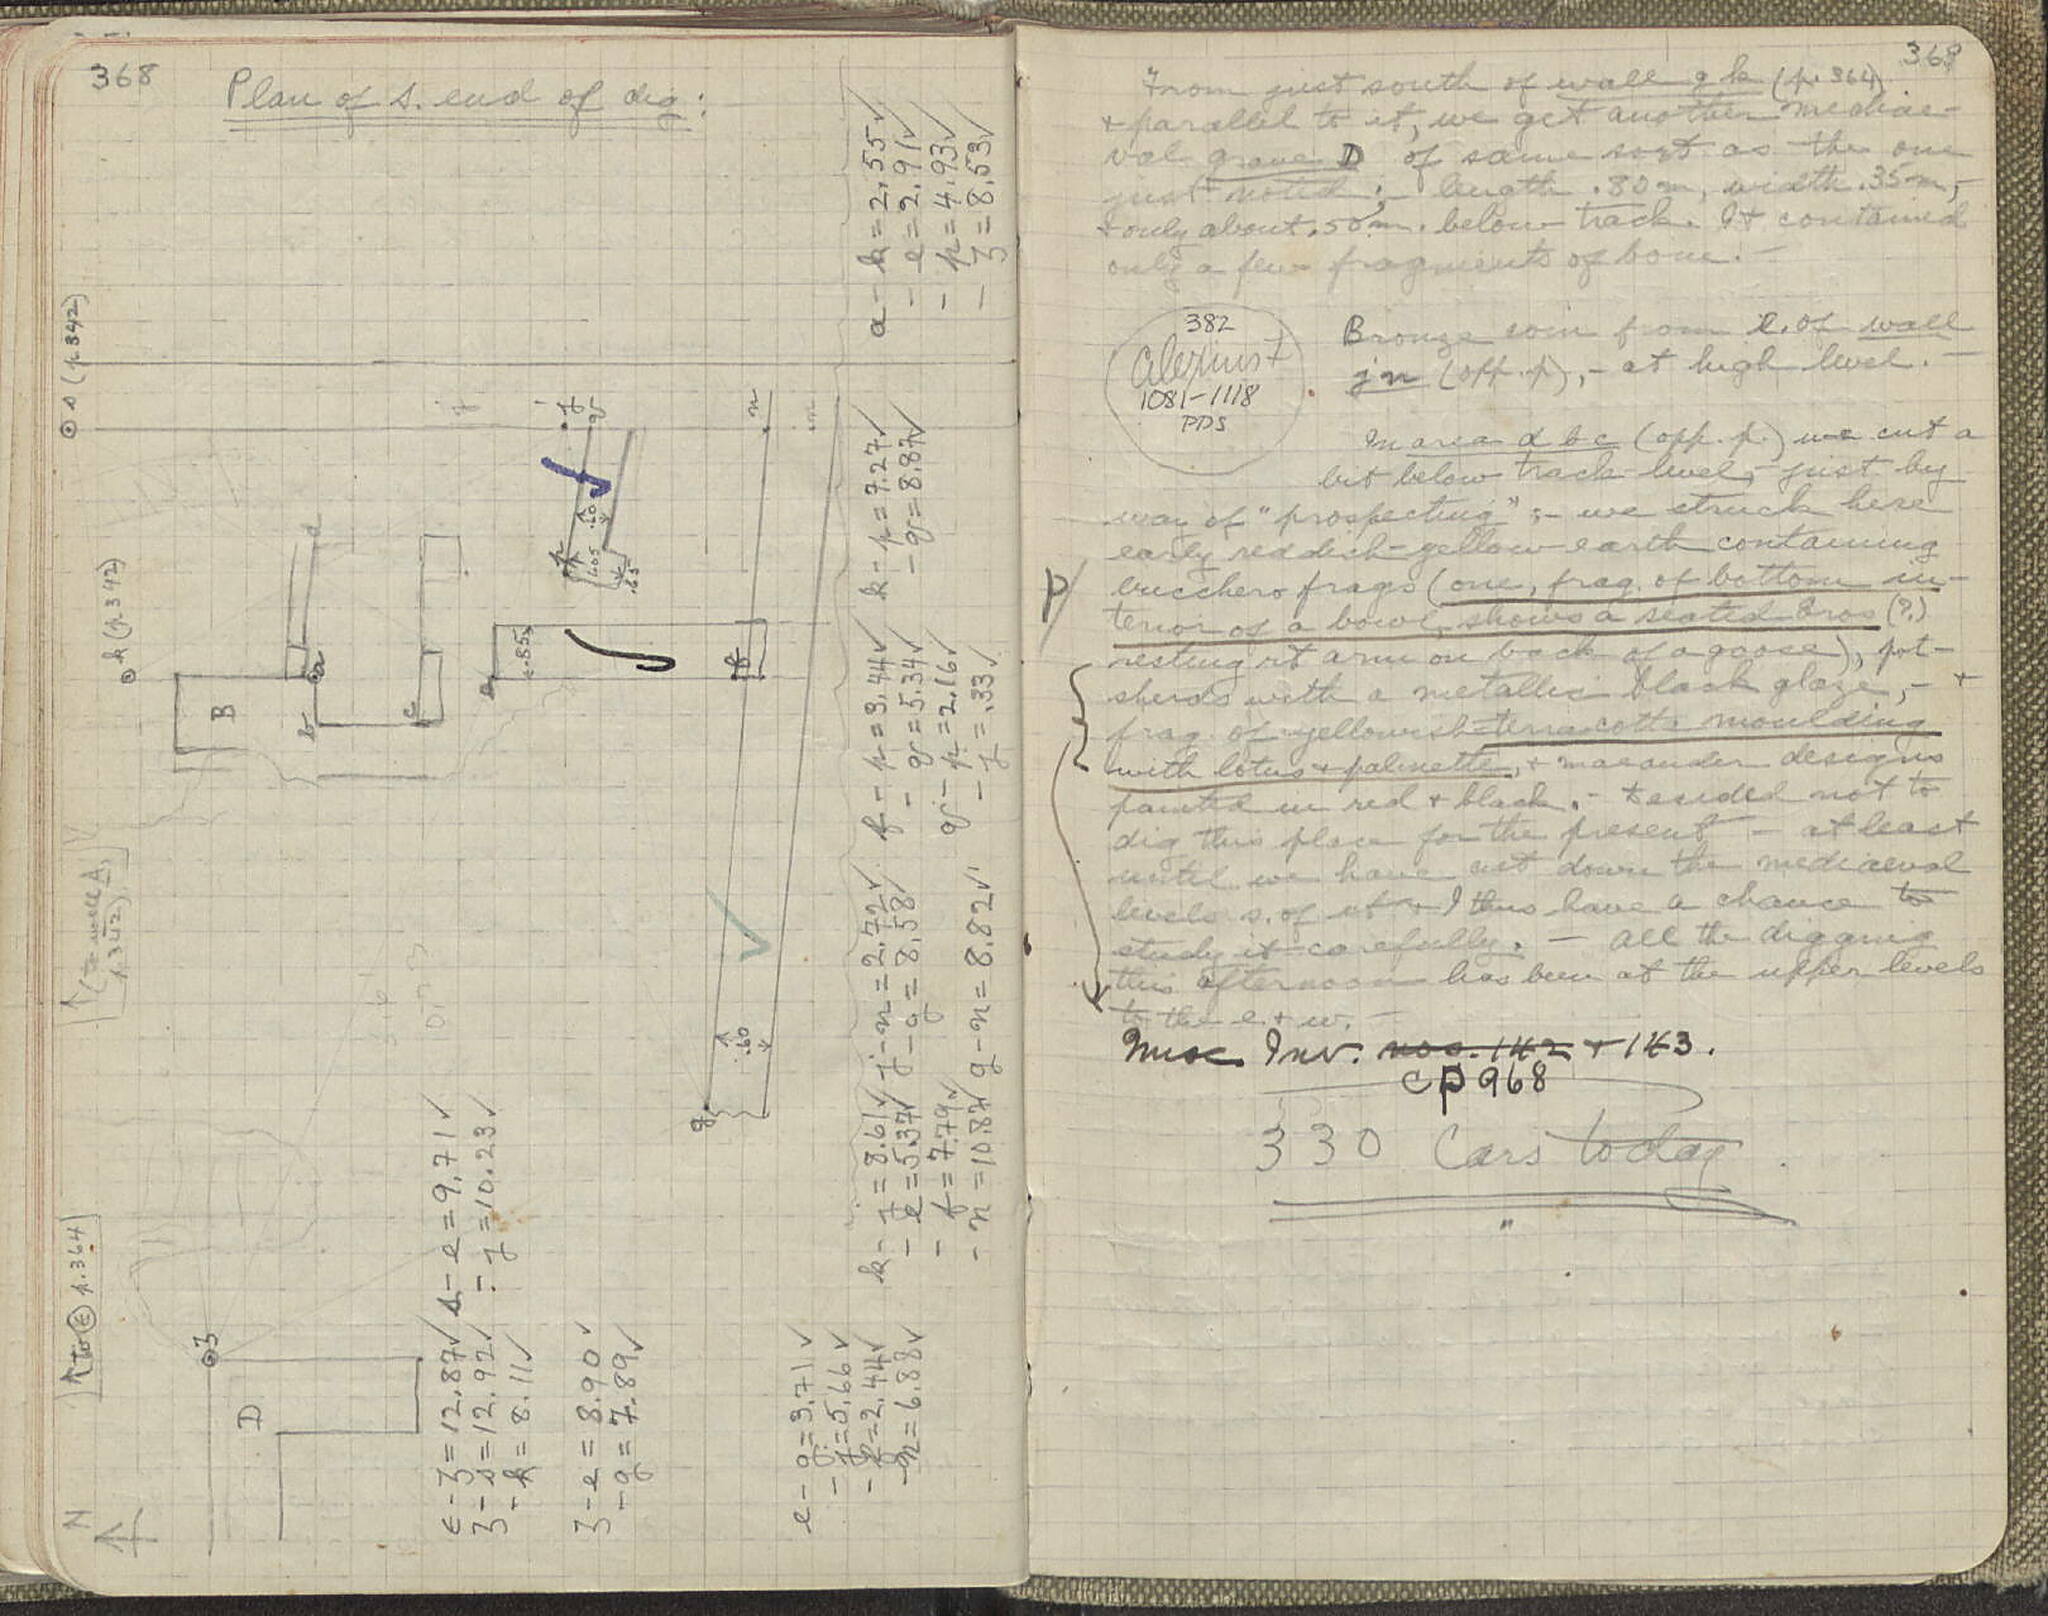 368
Plan of s. end of dig:
⊙ s (p 342)
⊙ k (p 342)
↑ (to well A, p. 342)
↑ to Ⓔ p. 364
N
B
D
a
b
c
d
e
f
g
j
n
p
q
3
.85
.60
.60
.65
a - k = 2.55 ✓
- e = 2.91 ✓
- p = 4.93 ✓
- 3 = 8.53 ✓
k - p = 7.27 ✓
- q = 8.87 ✓
f - p = 3.44 ✓
- q = 5.34 ✓
q - p = 2.16 ✓
- j = .33 ✓
j - n = 2.72 ✓
j - g = 8.58 ✓
g - n = 8.82 ✓
k - j = 8.61 ✓
- e = 5.37 ✓
- f = 7.79 ✓
- n = 10.87 ✓
e - g = 3.71 ✓
- j = 5.66 ✓
- p = 2.44 ✓
- n = 6.88 ✓
s - e = 9.71 ✓
- j = 10.23 ✓
ε - 3 = 12.87 ✓
3 - s = 12.92 ✓
- k = 8.11 ✓
3 - e = 8.90 ✓
- g = 7.89 ✓
368
From just south of wall g k (p. 364)
& parallel to it, we get another mediae-
val grave D of same sort as the one
just noted; - length .80 m, width .35 m, -
& only about .50 m. below track. It contained
only a few fragments of bone. -
382
Alexius I
1081-1118
PDS
Bronze coin from e. of wall
jn (opp. p), - at high level. -
In area a b c (opp. p.) we cut a
bit below track level, - just by
way of "prospecting"; - we struck here
early reddish-yellow earth containing
P/
bucchero frags (one, frag. of bottom in-
terior of a bowl, shows a seated Eros (?)
resting rt arm on back of a goose), pot-
sherds with a metallic black glaze, - +
frag. of yellowish terracotta moulding
with lotus + palmette, + maeander designs
painted in red + black. - Decided not to
dig this place for the present - at least
until we have cut down the mediaeval
levels s. of it + thus have a chance to
study it carefully. - All the digging
this afternoon has been at the upper levels
to the e. + w. -
Misc Inv. nos. 142 + 143.
CP 968
330 Cars today